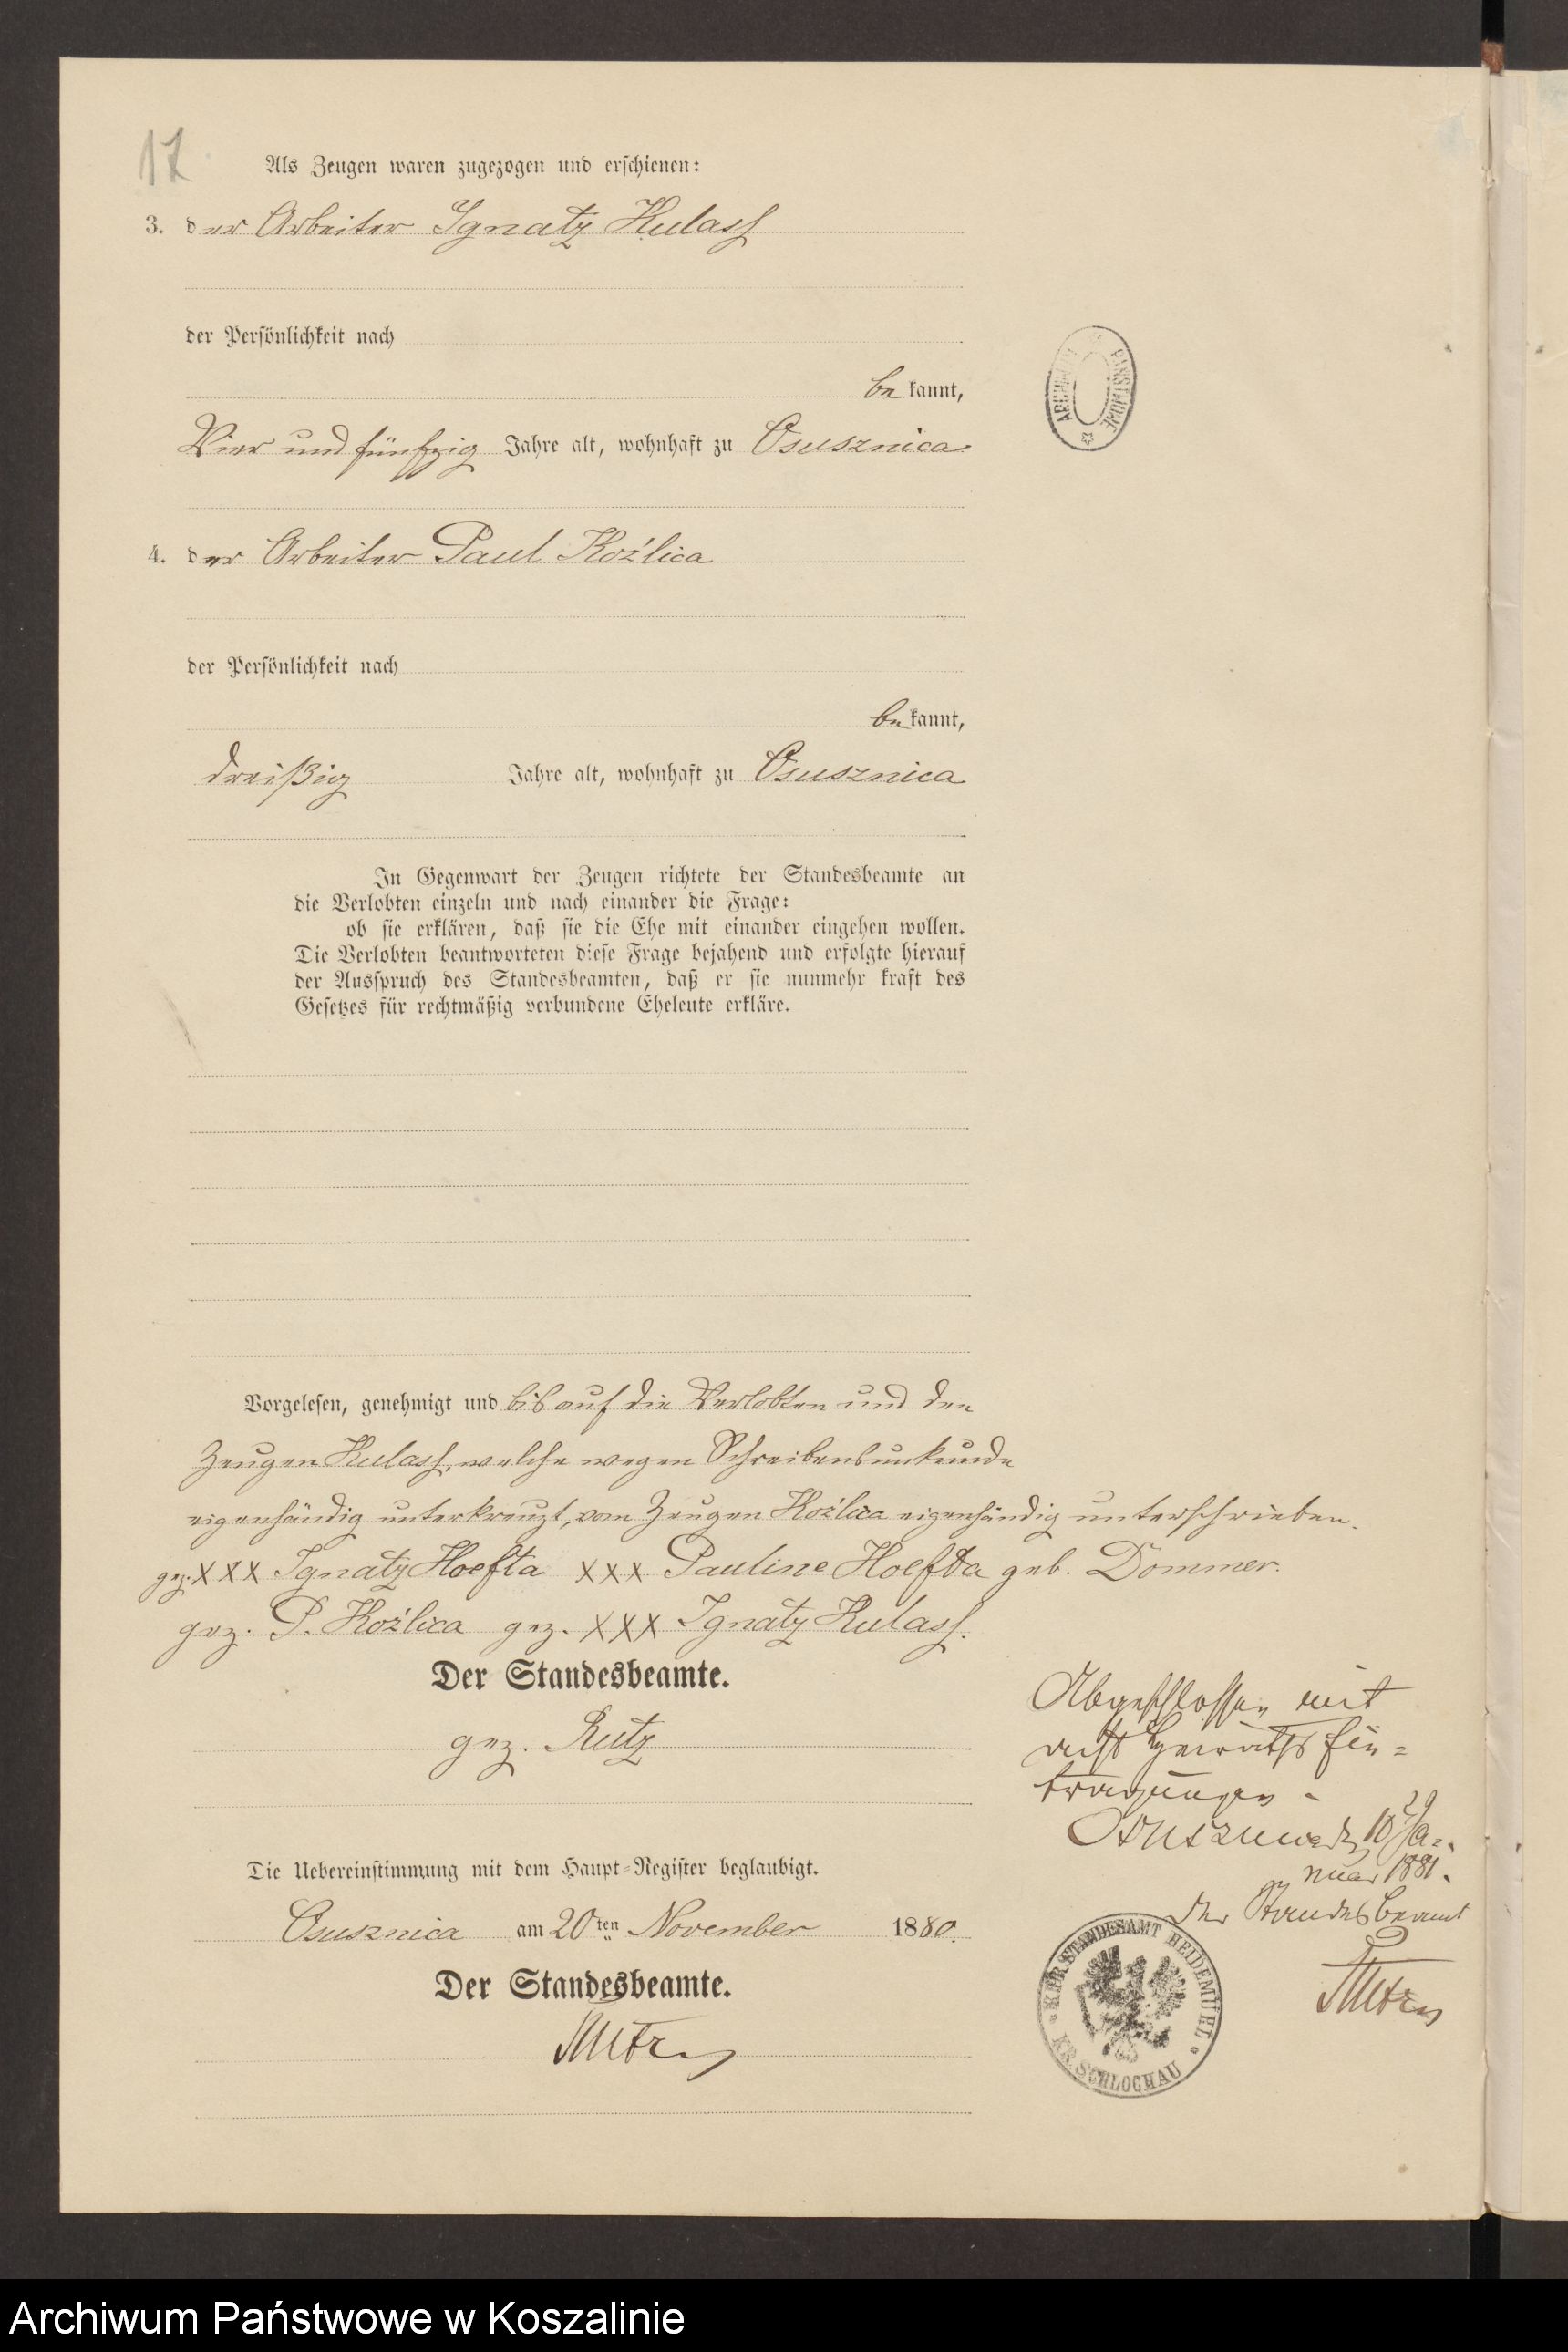 17
Als Zeugen waren zugezogen und erschienen:
3. der Arbeiter Ignatz Kulass
der Persönlichkeit nach
be kannt,
Vier und fünfzig Jahre alt, wohnhaft zu Osusznica
4. der Arbeiter Paul Koźlica
der Persönlichkeit nach
be kannt,
dreißig Jahre alt, wohnhaft zu Osusznica
In Gegenwart der Zeugen richtete der Standesbeamte an
die Verlobten einzeln und nach einander die Frage:
ob sie erklären, daß sie die Ehe mit einander eingehen wollen.
Die Verlobten beantworteten diese Frage bejahend und erfolgte hierauf
der Ausspruch des Standesbeamten, daß er sie nunmehr kraft des
Gesetzes für rechtmäßig verbundene Eheleute erkläre.
Vorgelesen, genehmigt und bis auf die Verlobten und den
Zeugen Kulass, welche wegen Schreibensunkunde
eigenhändig unterkreuzt, vom Zeugen Koźlica eigenhändig unterschrieben.
gez. XXX Ignatz Hoefta XXX Pauline Hoefta geb. Dommer.
gez. P. Koźlica gez. XXX Ignatz Kulass.
Der Standesbeamte.
gez. Rutz
Die Uebereinstimmung mit dem Haupt-Register beglaubigt.
Osusznica am 20ten November 1880.
Der Standesbeamte.
Rutz
Abgeschlossen mit
acht Heiraths Ein=
tragungen.
Osusznica d 10 Ja=
nuar 1881.
Der Standesbeamt
Rutz
K. PR. STANDESAMT HEIDEMÜHL
KR. SCHLOCHAU
ARCHIWUM PAŃSTWOWE
Archiwum Państwowe w Koszalinie